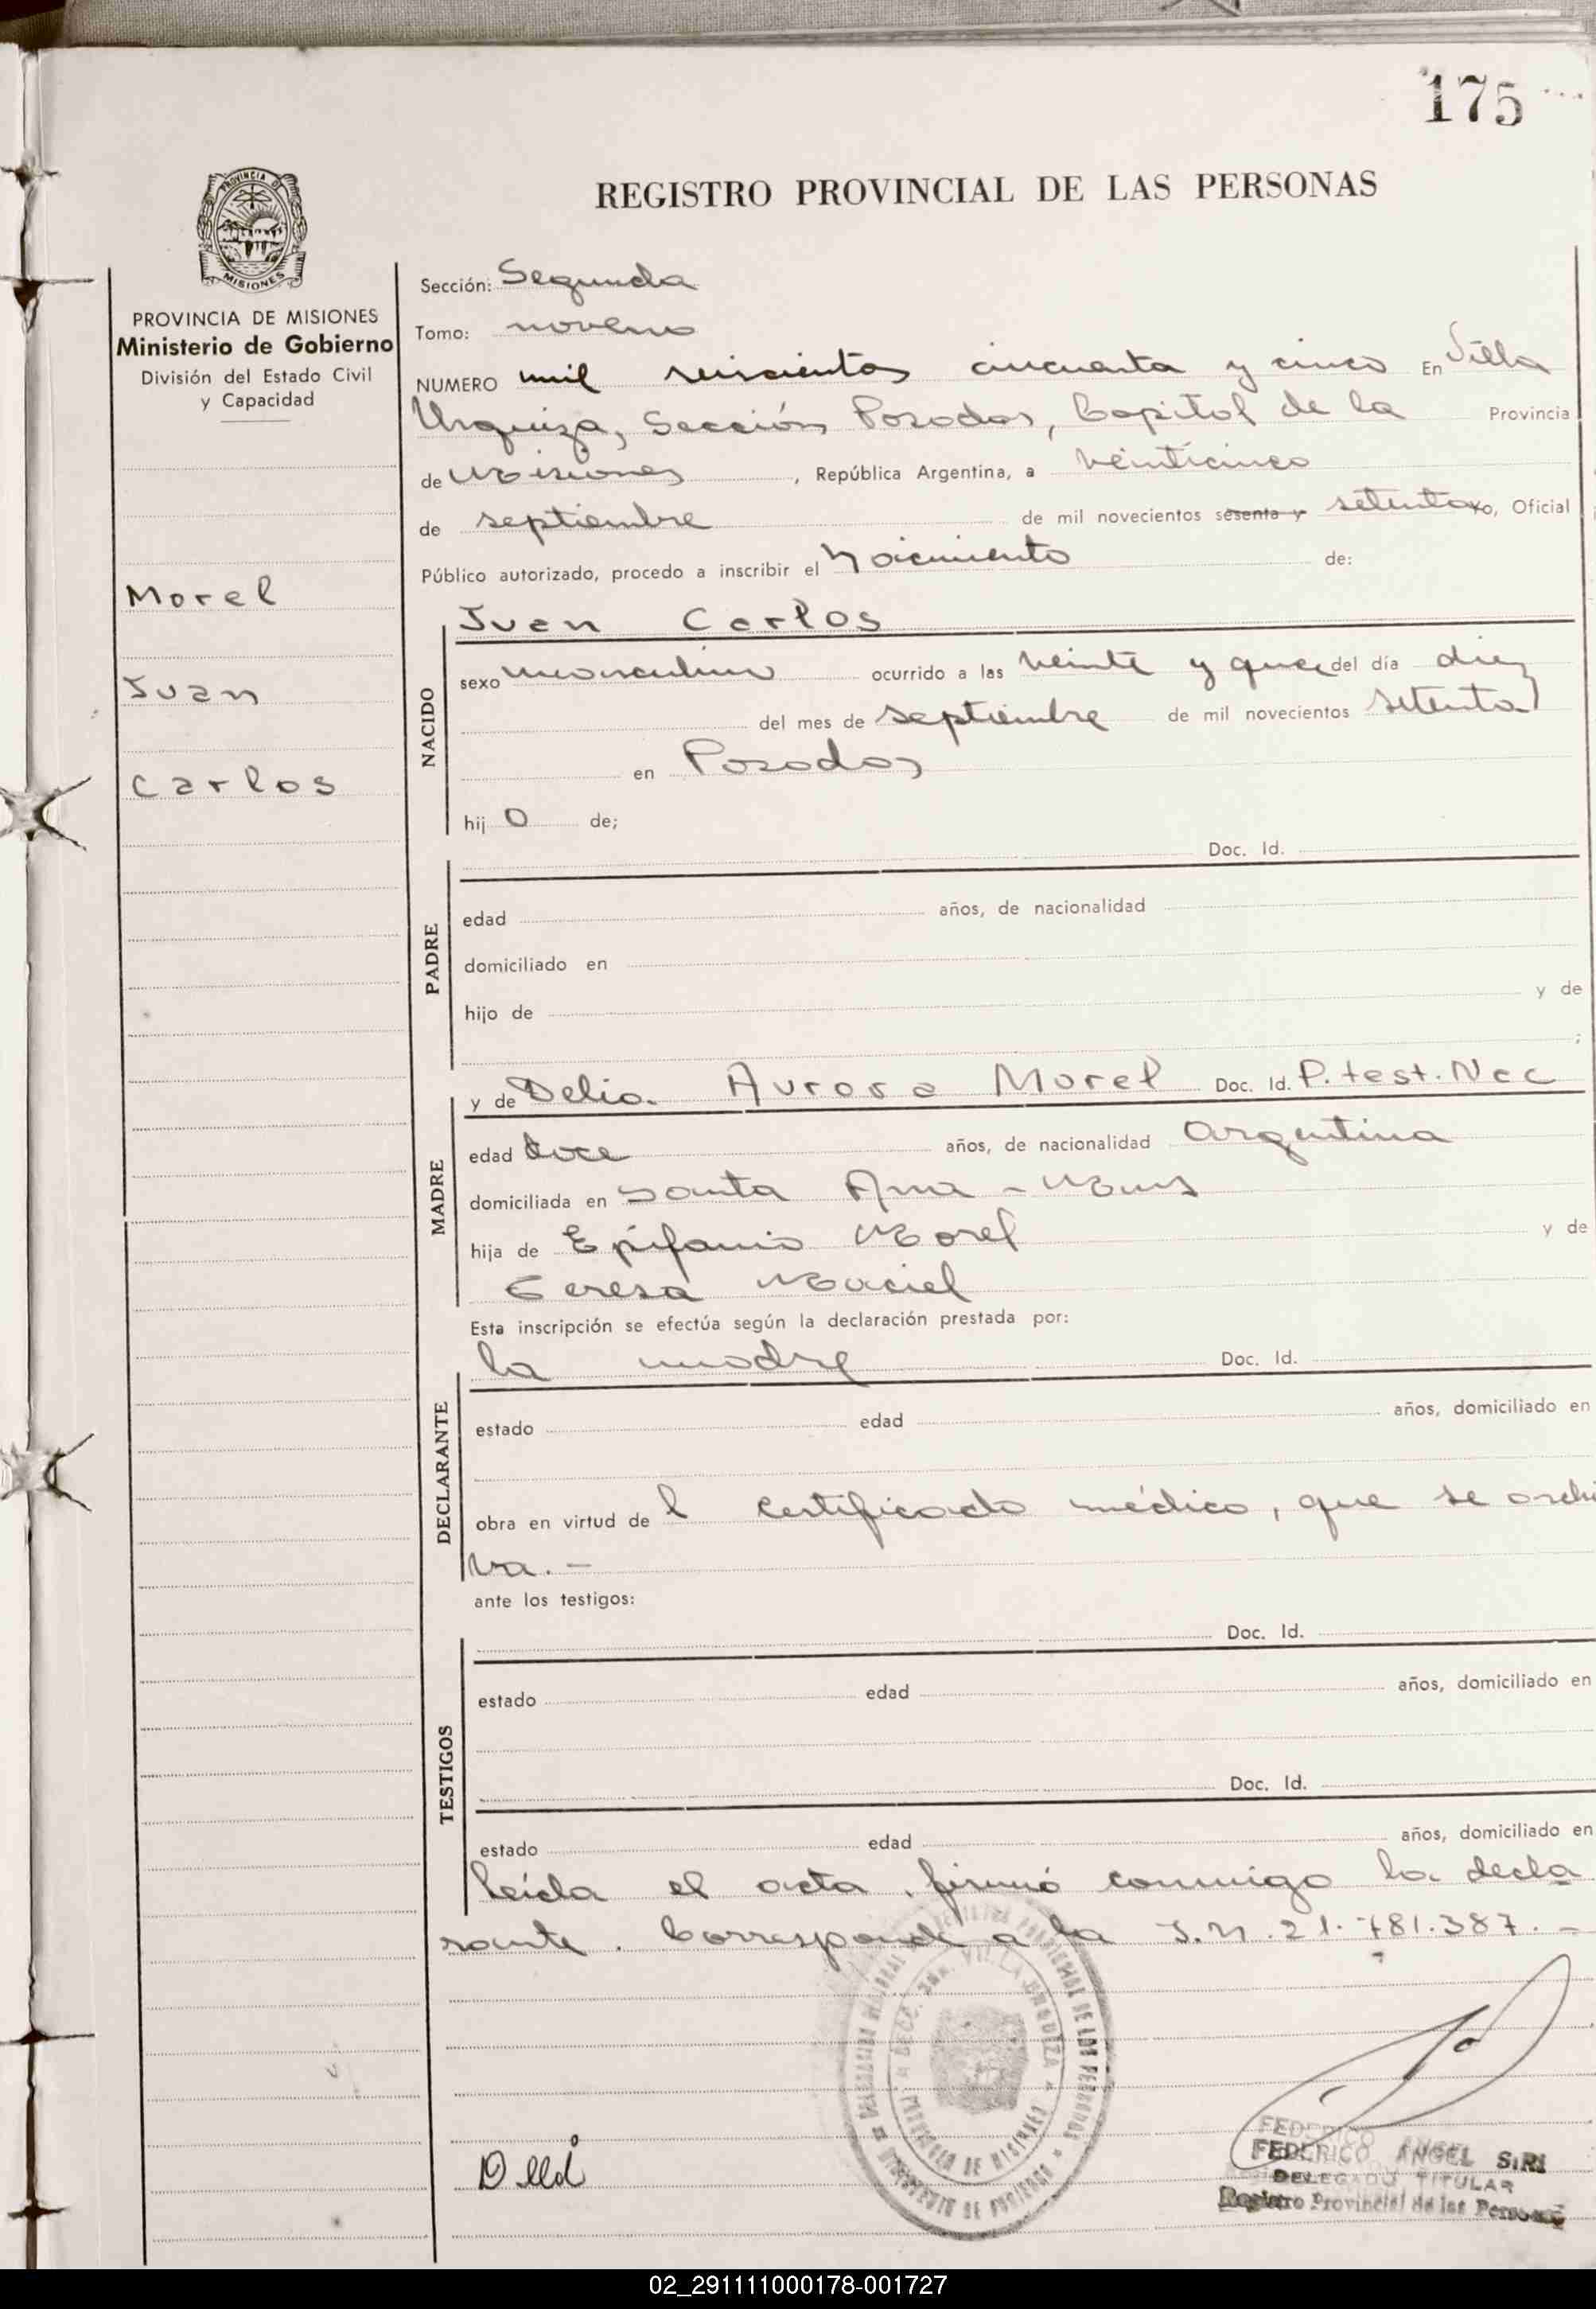 175
REGISTRO PROVINCIAL DE LAS PERSONAS
PROVINCIA DE MISIONES
PROVINCIA DE MISIONES
Ministerio de Gobierno
División del Estado Civil
y Capacidad
Morel
Juan
Carlos
Sección: Segunda
Tomo: noveno
NUMERO mil seiscientos cincuenta y cinco En Villa
Urquiza, Sección Posadas, Capital de la Provincia
de Misiones, República Argentina, a veinticinco
de septiembre de mil novecientos sesenta y setenta yo, Oficial
Público autorizado, procedo a inscribir el Nacimiento de:
NACIDO
Juan Carlos
sexo masculino ocurrido a las veinte y del día diez
del mes de septiembre de mil novecientos setenta
en Posadas
hij o de;
PADRE
Doc. Id.
edad años, de nacionalidad
domiciliado en
hijo de y de
;
MADRE
y de Delia Aurora Morel Doc. Id. P. test. Nac
edad doce años, de nacionalidad Argentina
domiciliada en Santa Ana - Mnes
hija de Epifanio Morel y de
Teresa Maciel
Esta inscripción se efectúa según la declaración prestada por:
DECLARANTE
la madre Doc. Id.
estado edad años, domiciliado en
obra en virtud de l certificado médico, que se archi
va.-
ante los testigos:
TESTIGOS
Doc. Id.
estado edad años, domiciliado en
Doc. Id.
estado edad años, domiciliado en
Leída el acta, firmó conmigo la decla
rante. Corresponde a la I.N. 21.781.387.-
FEDERICO ANGEL SIRI
DELEGADO TITULAR
Registro Provincial de las Personas
02_291111000178-001727